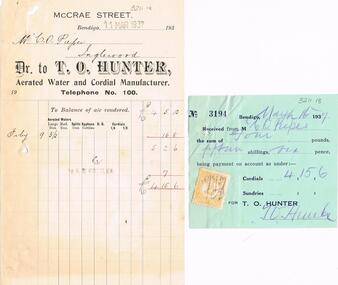 3211.18
McCRAE STREET.
Bendigo, 11 MAR 1937 193
Mr C. O. Pieper
Inglewood
Dr. to T. O. HUNTER,
Aerated Water and Cordial Manufacturer.
19 Telephone No. 100.
To Balance of a/c rendered. £ 4 5 10
Aerated Waters
Splits Syphons Cordials
Feby 9 16 8
5 2 6
7
£ 4 15 6
3211.18
No 3194 Bendigo, March 16 1937
Received from M C. O. Pieper
the sum of four pounds,
fifteen shillings, six pence,
being payment on account as under:—
Cordials 4.15.6
Sundries
FOR T. O. HUNTER
T. O. Hunter